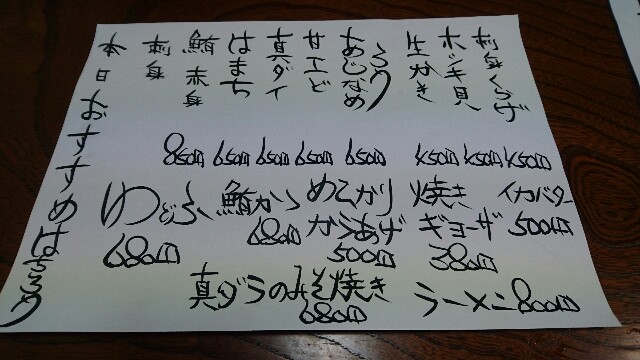 本日おすすめは
刺身
鮪赤身
850円
はまち
650円
真ダイ
650円
甘エビ
650円
あじなめ
ろう
650円
生かき
450円
ホッキ貝
450円
刺身くらげ
450円
ゆどうふ
680円
鮪かつ
680円
めひかり
からあげ
500円
焼き
ギョーザ
380円
イカバター
500円
真ダラのみそ焼き
680円
ラーメン 800円